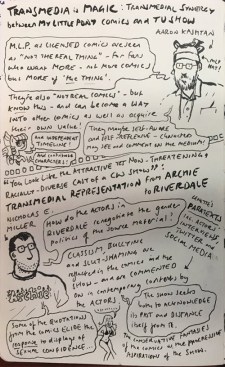 TRANSMEDIA IS MAGIC: TRANSMEDIAL SYNERGY
BETWEEN MY LITTLE PONY COMICS AND TV SHOW
AARON KASHTAN
M.L.P. AS LICENSED COMICS ARE SEEN
AS "NOT THE REAL THING" - FOR FANS
WHO WANT MORE - NOT MORE COMICS
BUT MORE OF 'THE THING'.
MLP
HAT!
THEY'RE ALSO "NOT REAL COMICS" - BUT
KNOW THIS - AND CAN BECOME A WAY
INTO OTHER COMICS AS WELL AS ACQUIRE
THEIR OWN VALUE!
AN INDEPENDENT
TIMELINE!
THEY MAY BE SELF-AWARE
MAY SEE AND COMMENT ON THE MEDIUM!
AND
CHARACTERS!
"YOU LOOK LIKE THE ATTRACTIVE YET NON-THREATENING,
RACIALLY-DIVERSE CAST OF A CW SHOW!":
TRANSMEDIAL REPRESENTATION FROM ARCHIE
TO RIVERDALE
NICHOLAS E.
MILLER
HOW DO THE ACTORS IN
RIVERDALE RENEGOTIATE THE GENDER
POLITICS OF THE SOURCE MATERIAL?
PARATEXTS
INC. ACTORS'
INTERVIEWS
TWITTER +
SOCIAL MEDIA
CLASSISM, BULLYING
AND SLUT-SHAMING ARE
REPEATED IN THE COMICS AND THE
SHOW - AND ARE COMMENTED
ON IN CONTEMPORARY CONTEXTS BY
THE ACTORS
THE SHOW SEEKS
BOTH TO ACKNOWLEDGE
ITS PAST AND DISTANCE
ITSELF FROM IT.
SOME OF THE QUOTATIONS
FROM THE COMICS ELIDE THE
RESPONSE TO DISPLAYS OF
SEXUAL CONFIDENCE...
THE CONSERVATIVE FANTASIES
OF THE COMICS VS THE PROGRESSIVE
ASPIRATIONS OF THE SHOW.